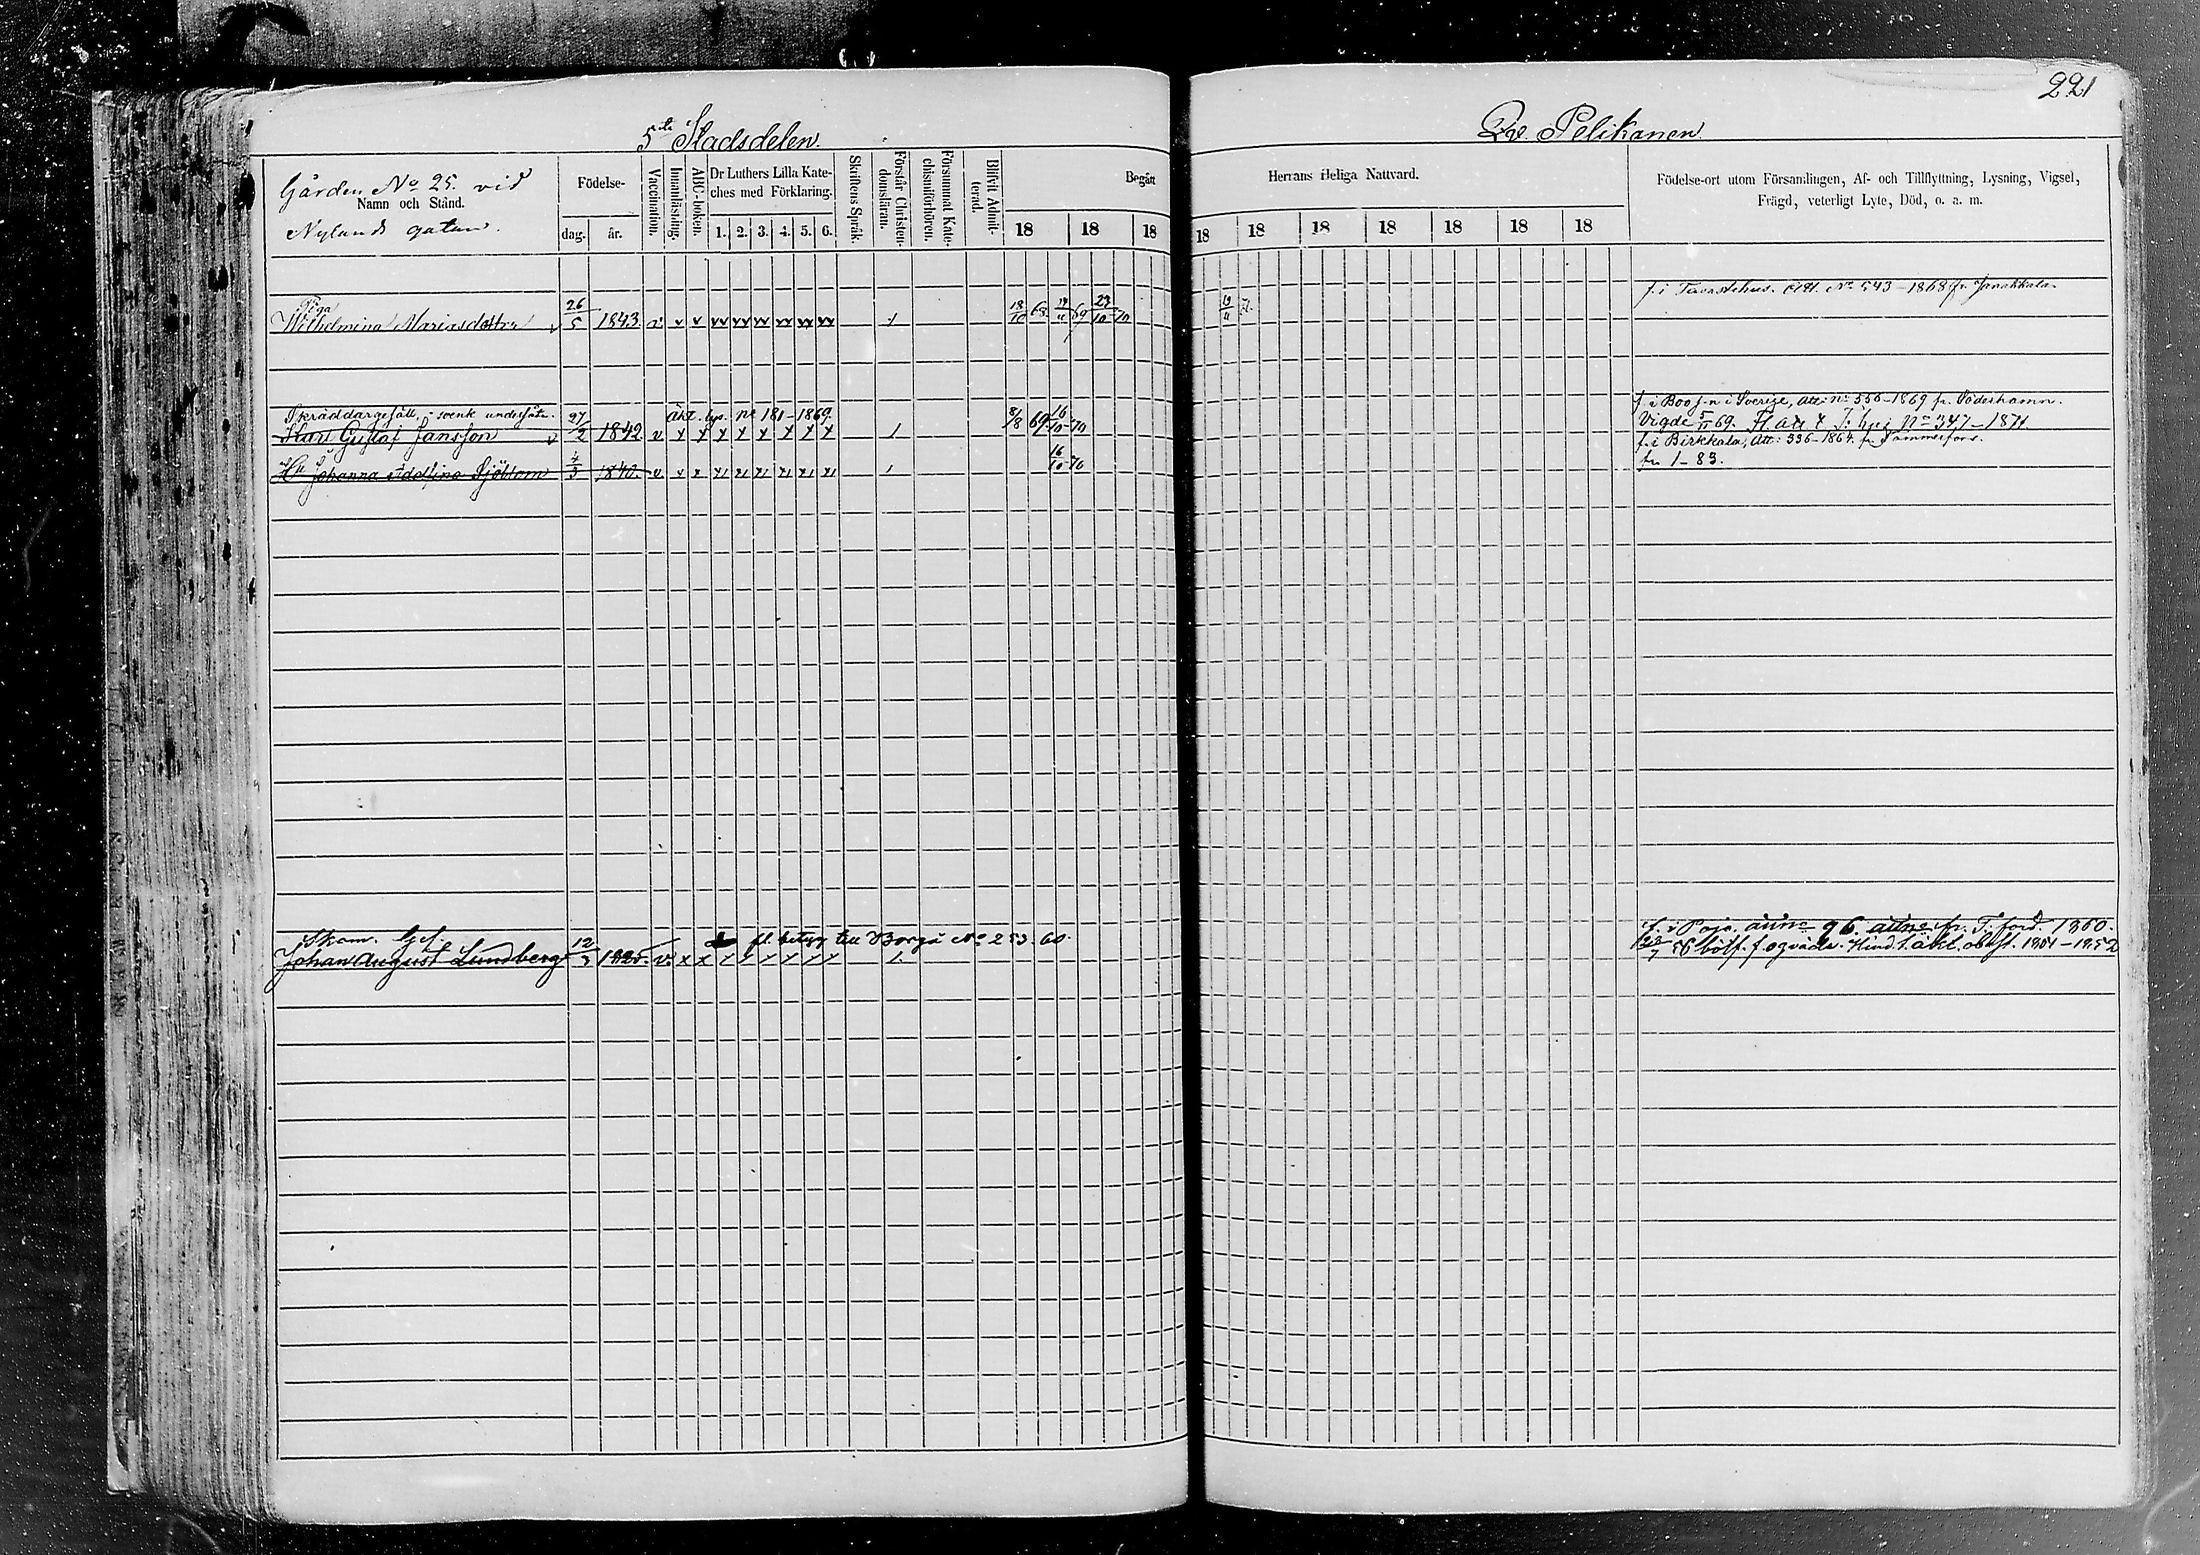 221
5te Stadsdelen. Qv. Pelikanen
Gården No 25. vid
Namn och Stånd.
Nylands gatan.
Födelse-
dag. år.
Vaccination.
Innanläsning.
ABC-boken.
Dr Luthers Lilla Kate-
ches med Förklaring.
1. 2. 3. 4. 5. 6.
Skriftens Språk.
Förstår Christen-
domsläran.
Försummat Kate-
chismiförhören.
Blifvit Admit-
terad.
Begått Herrans Heliga Nattvard.
18 18 18 18 18 18 18 18 18 18
Födelse-ort utom Församlingen, Af- och Tillflyttning, Lysning, Vigsel,
Frägd, veterligt Lyte, Död, o. a. m.
f. i Tavastehus. Att. No 543-1868 fr. Janakkala.
Piga
Wilhelmina Mariasdotter v 26/5 1843 v v v vv vv vv vv vv vv 18/10 68 69 23/10-70
Skräddargesäll, svensk undersåte. Äkt. lys. no 181-1869.
f. i Boo s-n i Sverige, Att: no 556-1869 fr. Söderhamn.
Karl Gustaf Jansson v 27/2 1842. v 8/8 69 16/10-70
Vigde 5/11 69. No 347-1871
f. i Birkkala, Att: 336-1864. fr. Tammerfors.
Hu Johanna Adolfina Sjöblom 4/3 1840. v v 16/10-70
fr. 1-83.
Skom. Ges. fl. betyg till Borgå No 253. 60.
f. i Pojo. 96. fr. T.fors. 1860.
Johan August Lundberg 12/3 1825. v. x x 1851-1852